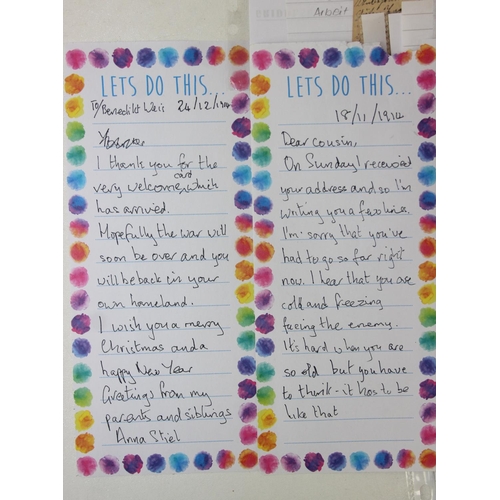 Arbeit
LETS DO THIS...
To/ Benedikt Weis 24/12/1914
I thank you for the
very welcome card which
has arrived.
Hopefully the war will
soon be over and you
will be back in your
own homeland.
I wish you a merry
Christmas and a
happy New Year
Greetings from my
parents and siblings
Anna Stiel
LETS DO THIS...
18/11/1914
Dear cousin,
On Sunday I received
your address and so I'm
writing you a few lines.
I'm sorry that you've
had to go so far right
now. I hear that you are
cold and freezing
facing the enemy.
It's hard when you are
so old but you have
to think - it has to be
like that